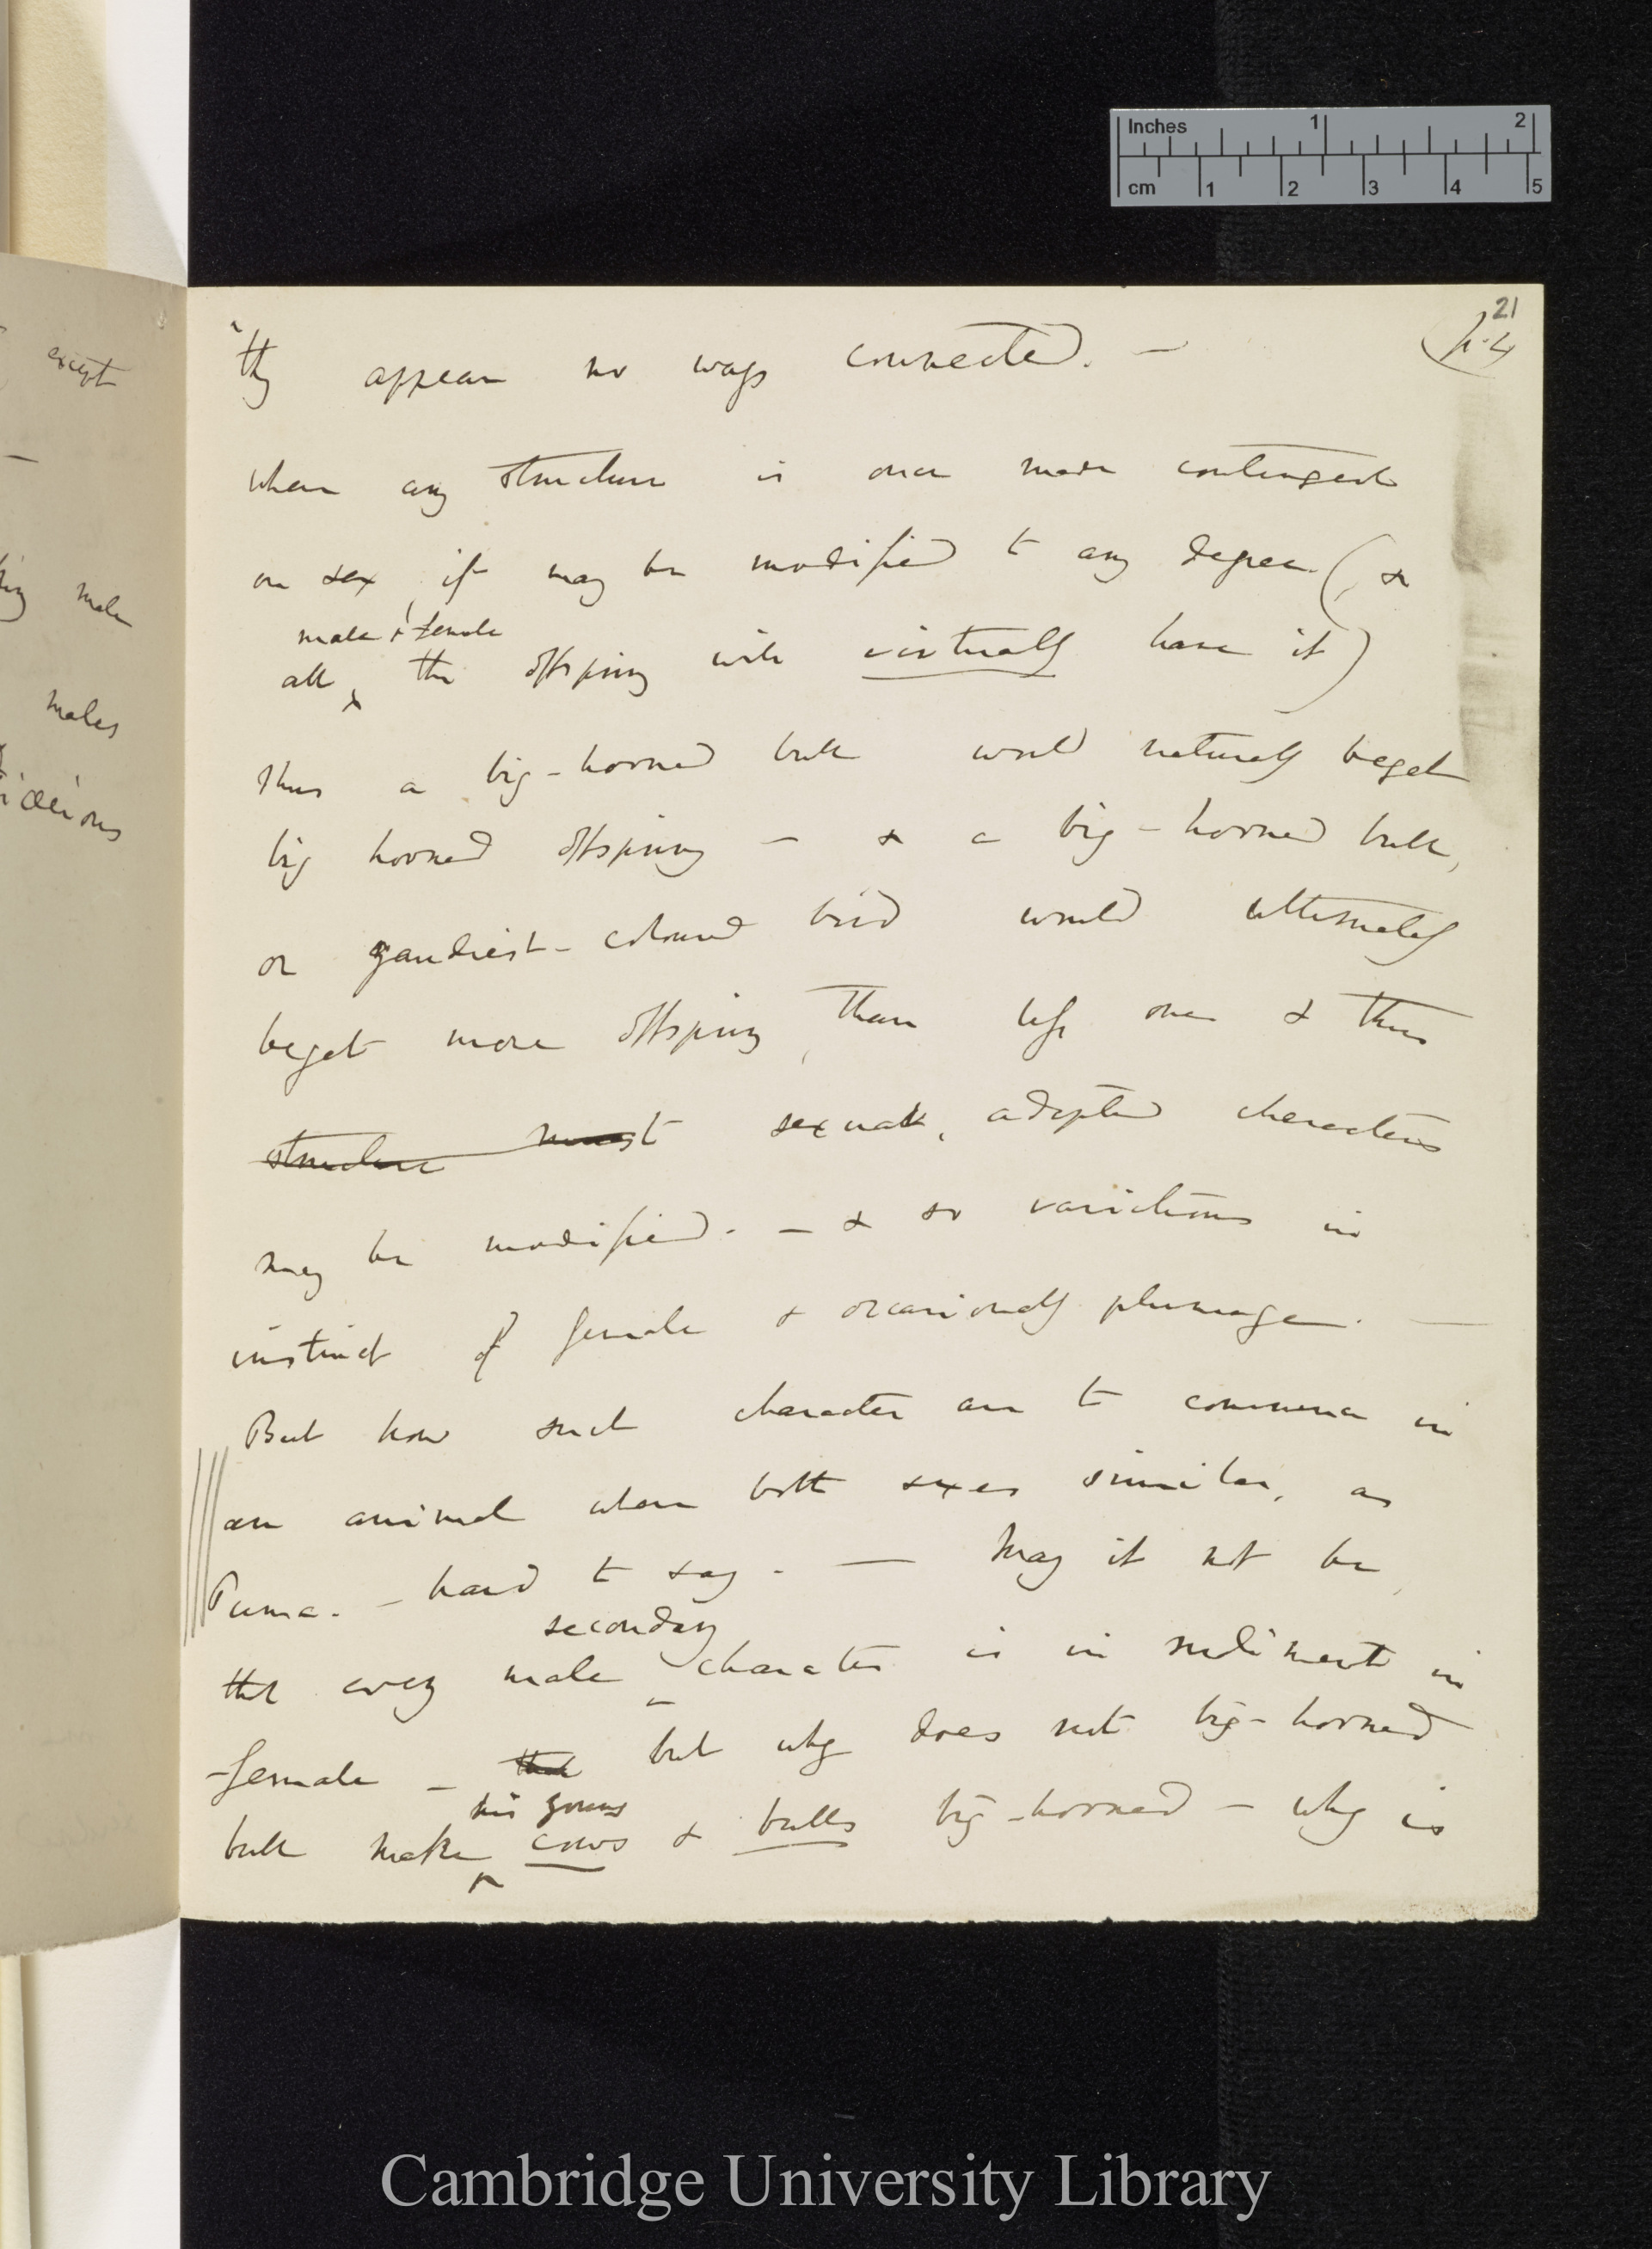 Inches 1 2
cm 1 2 3 4 5
21
p. 4
they appear no ways connected. —
When any structure is once made contingent
on sex, it may be modified to any degree. (, &
male & female
all the offspring will virtually have it)
Thus a big-horned bull would naturally beget
big horned offspring — & a big-horned bull,
or gaudiest-coloured bird would ultimately
beget more offspring, than less one & thus
structure must sexual, adapted characters
may be modified. — & so variations in
instinct of female & occasionally plumage. —
But how such character are to commence in
an animal where both sexes similar, as
Puma. — hard to say. — May it not be,
secondary
that every male character is in rudiment in
female — that but why does not big-horned
his young
bull make cows & bulls big-horned — why is
except
male
males
Cambridge University Library